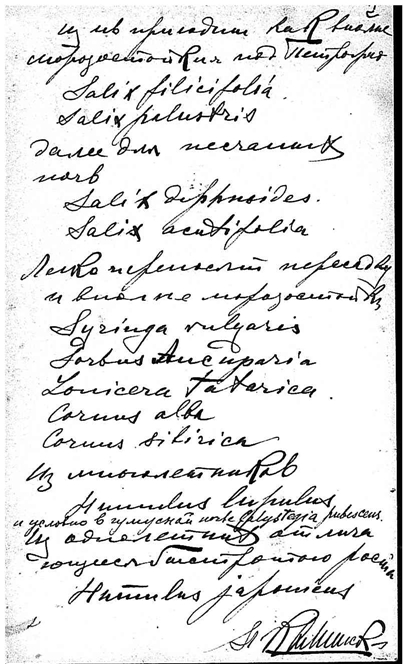 из ив пригодит как вполне
морозостойкия под Петрогра
Salix filicifolia.
Salix palustris
далее для песчаных
почв
Salix daphnoides.
Salix acutifolia
Легко переносят пересадку
и вполне морозостойки
Syringa vulgaris
Sorbus Aucuparia
Lonicera tatarica.
Cornus alba
Cornus sibirica
Из многолетников
Humulus lupulus
и условно в гумусной почве Calystegia pubescens.
Из однолетних отлича
ющиеся быстротою роста
Humulus japonicus